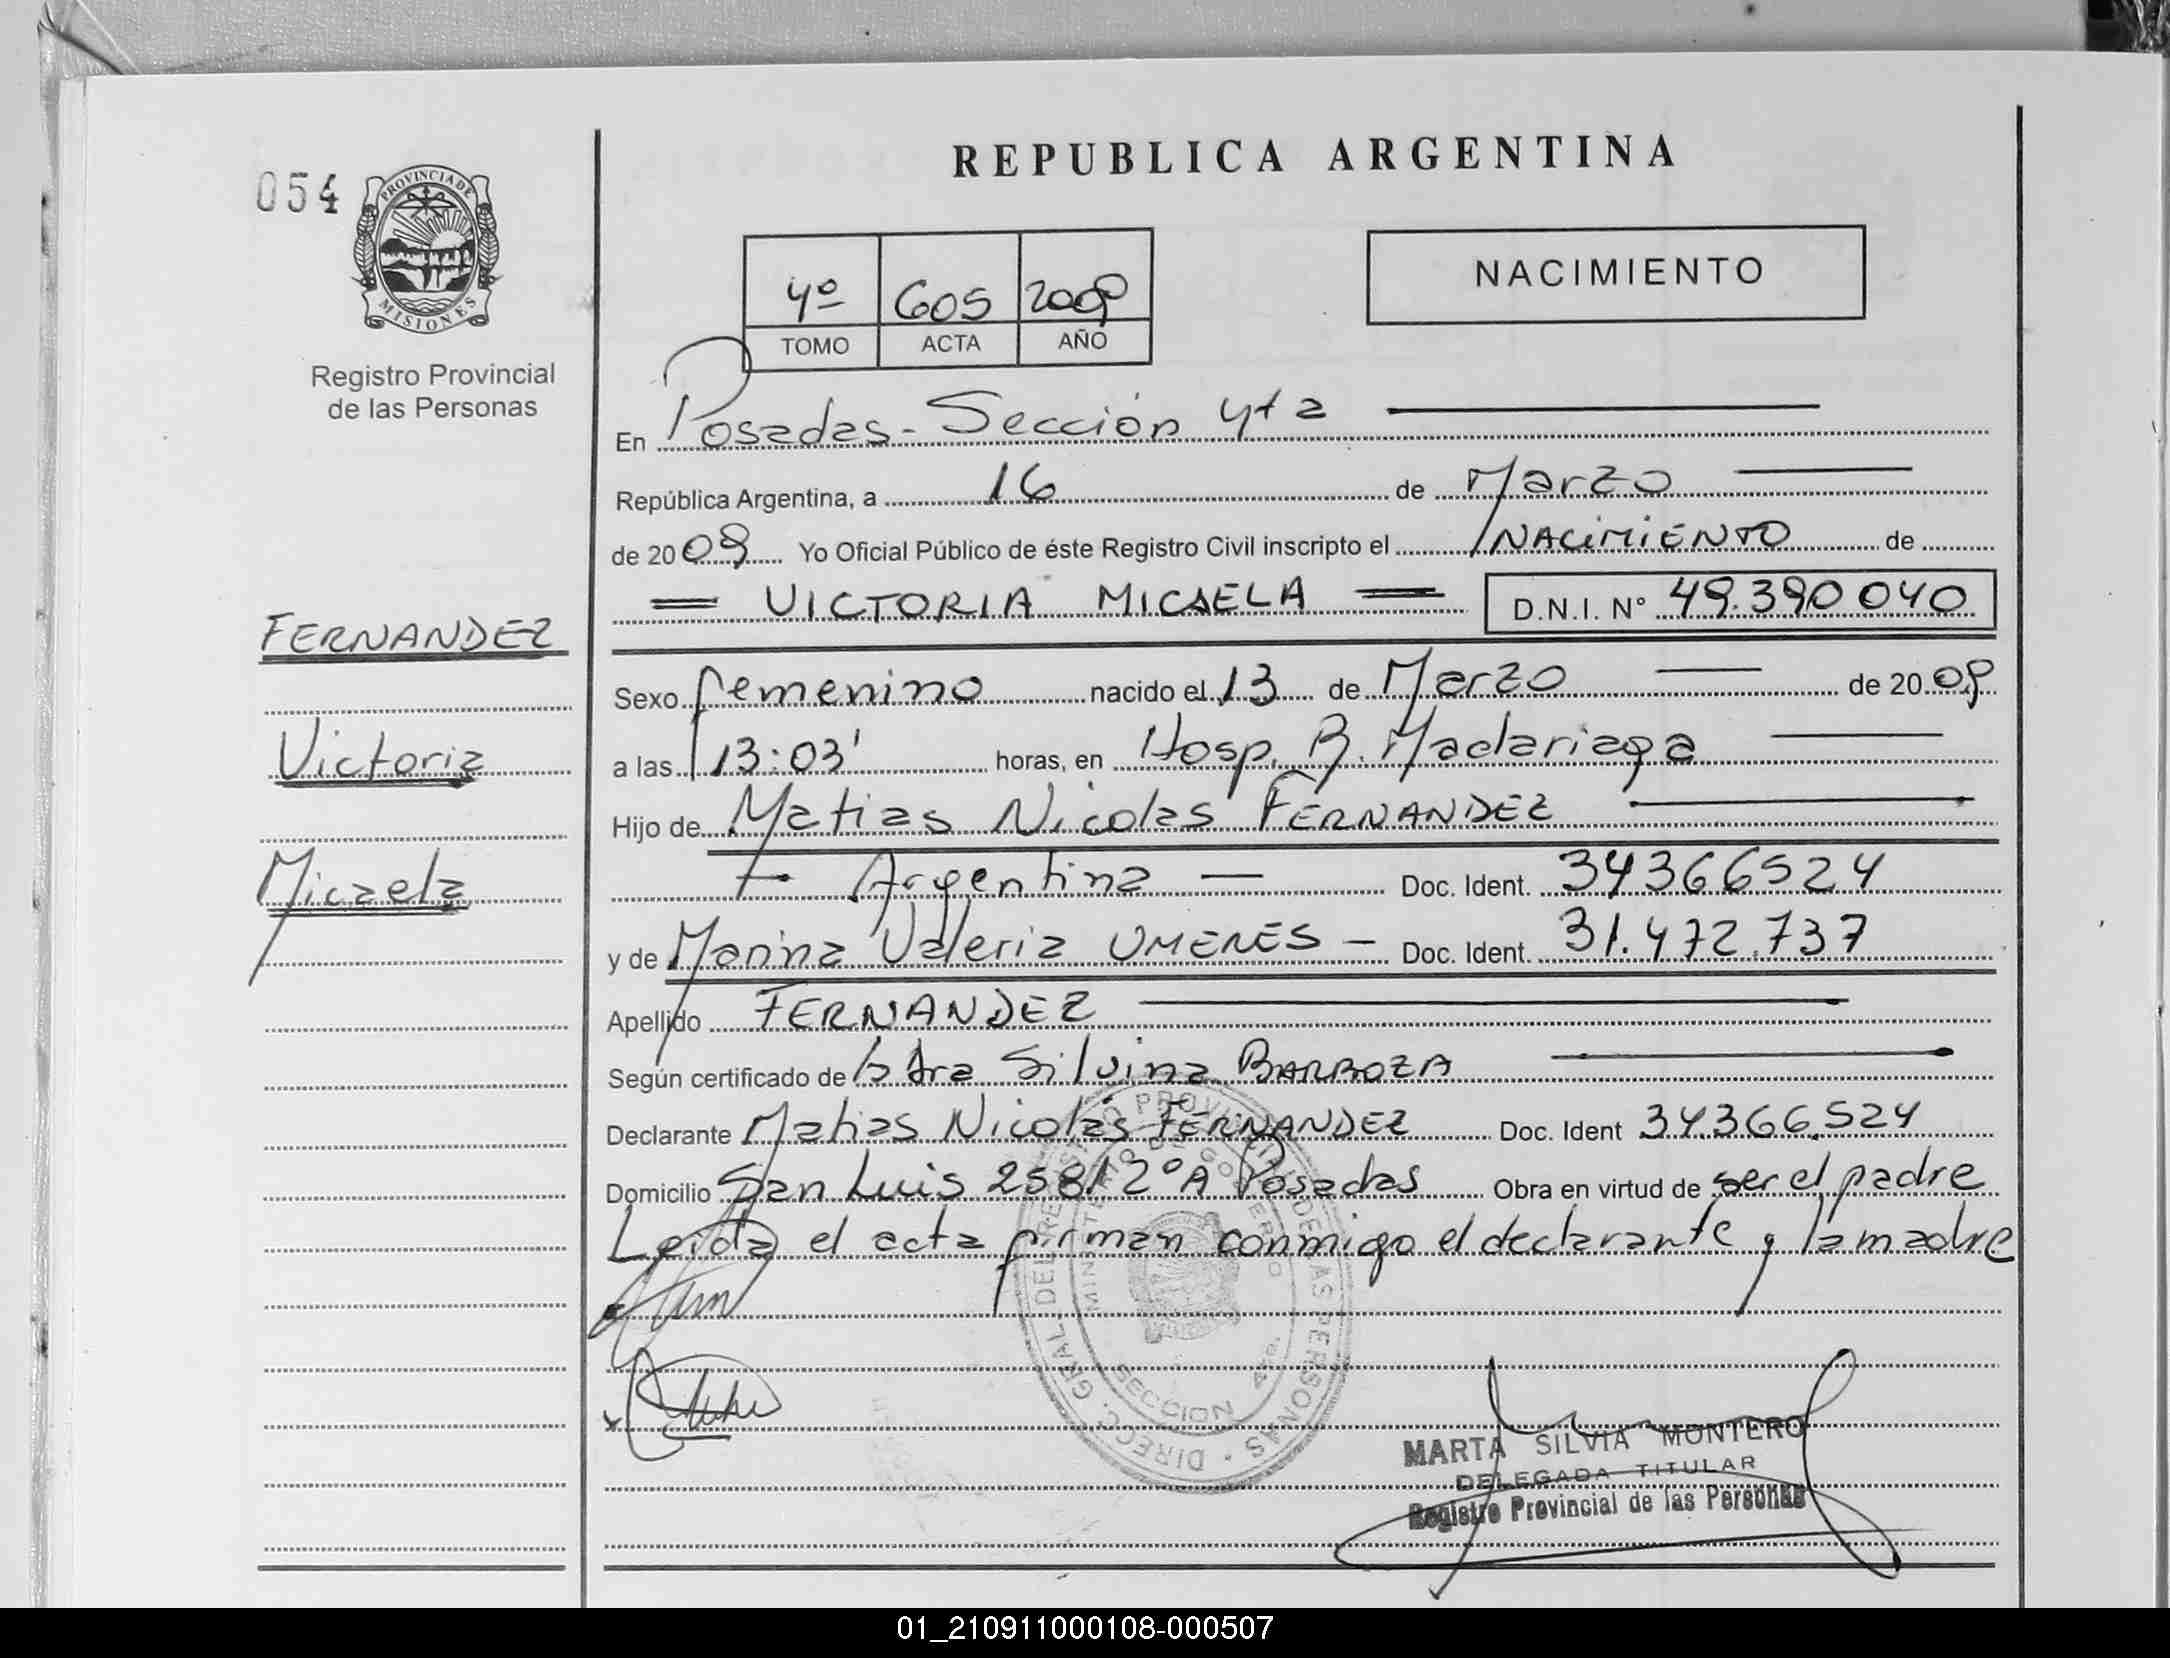 054
PROVINCIA DE
MISIONES
Registro Provincial
de las Personas
FERNANDEZ
Victoria
Micaela
REPUBLICA ARGENTINA
4º 605 2009
TOMO ACTA AÑO
NACIMIENTO
En Posadas - Sección 4ta
República Argentina, a 16 de Marzo
de 2009 Yo Oficial Público de éste Registro Civil inscripto el NACIMIENTO de
VICTORIA MICAELA D.N.I. Nº 49.390040
Sexo femenino nacido el 13 de Marzo de 2009
a las 13:03' horas, en Hosp. R. Madariaga
Hijo de Matias Nicolas FERNANDEZ
Argentina Doc. Ident. 34366524
y de Valeria Doc. Ident. 31.472.737
Apellido FERNANDEZ
Según certificado de la dra Silvina BARBOZA
Declarante Matias Nicolás FERNANDEZ Doc. Ident 34.366.524
Domicilio San Luis 2581 2º A Posadas Obra en virtud de ser el padre
Leida el acta firman conmigo el declarante y la madre
DIREC. GRAL. DEL REGISTRO PROVINCIAL DE LAS PERSONAS
MINISTERIO DE GOBIERNO
SECCION 4ta.
MARTA SILVIA MONTERO
DELEGADA TITULAR
Registro Provincial de las Personas
01_210911000108-000507